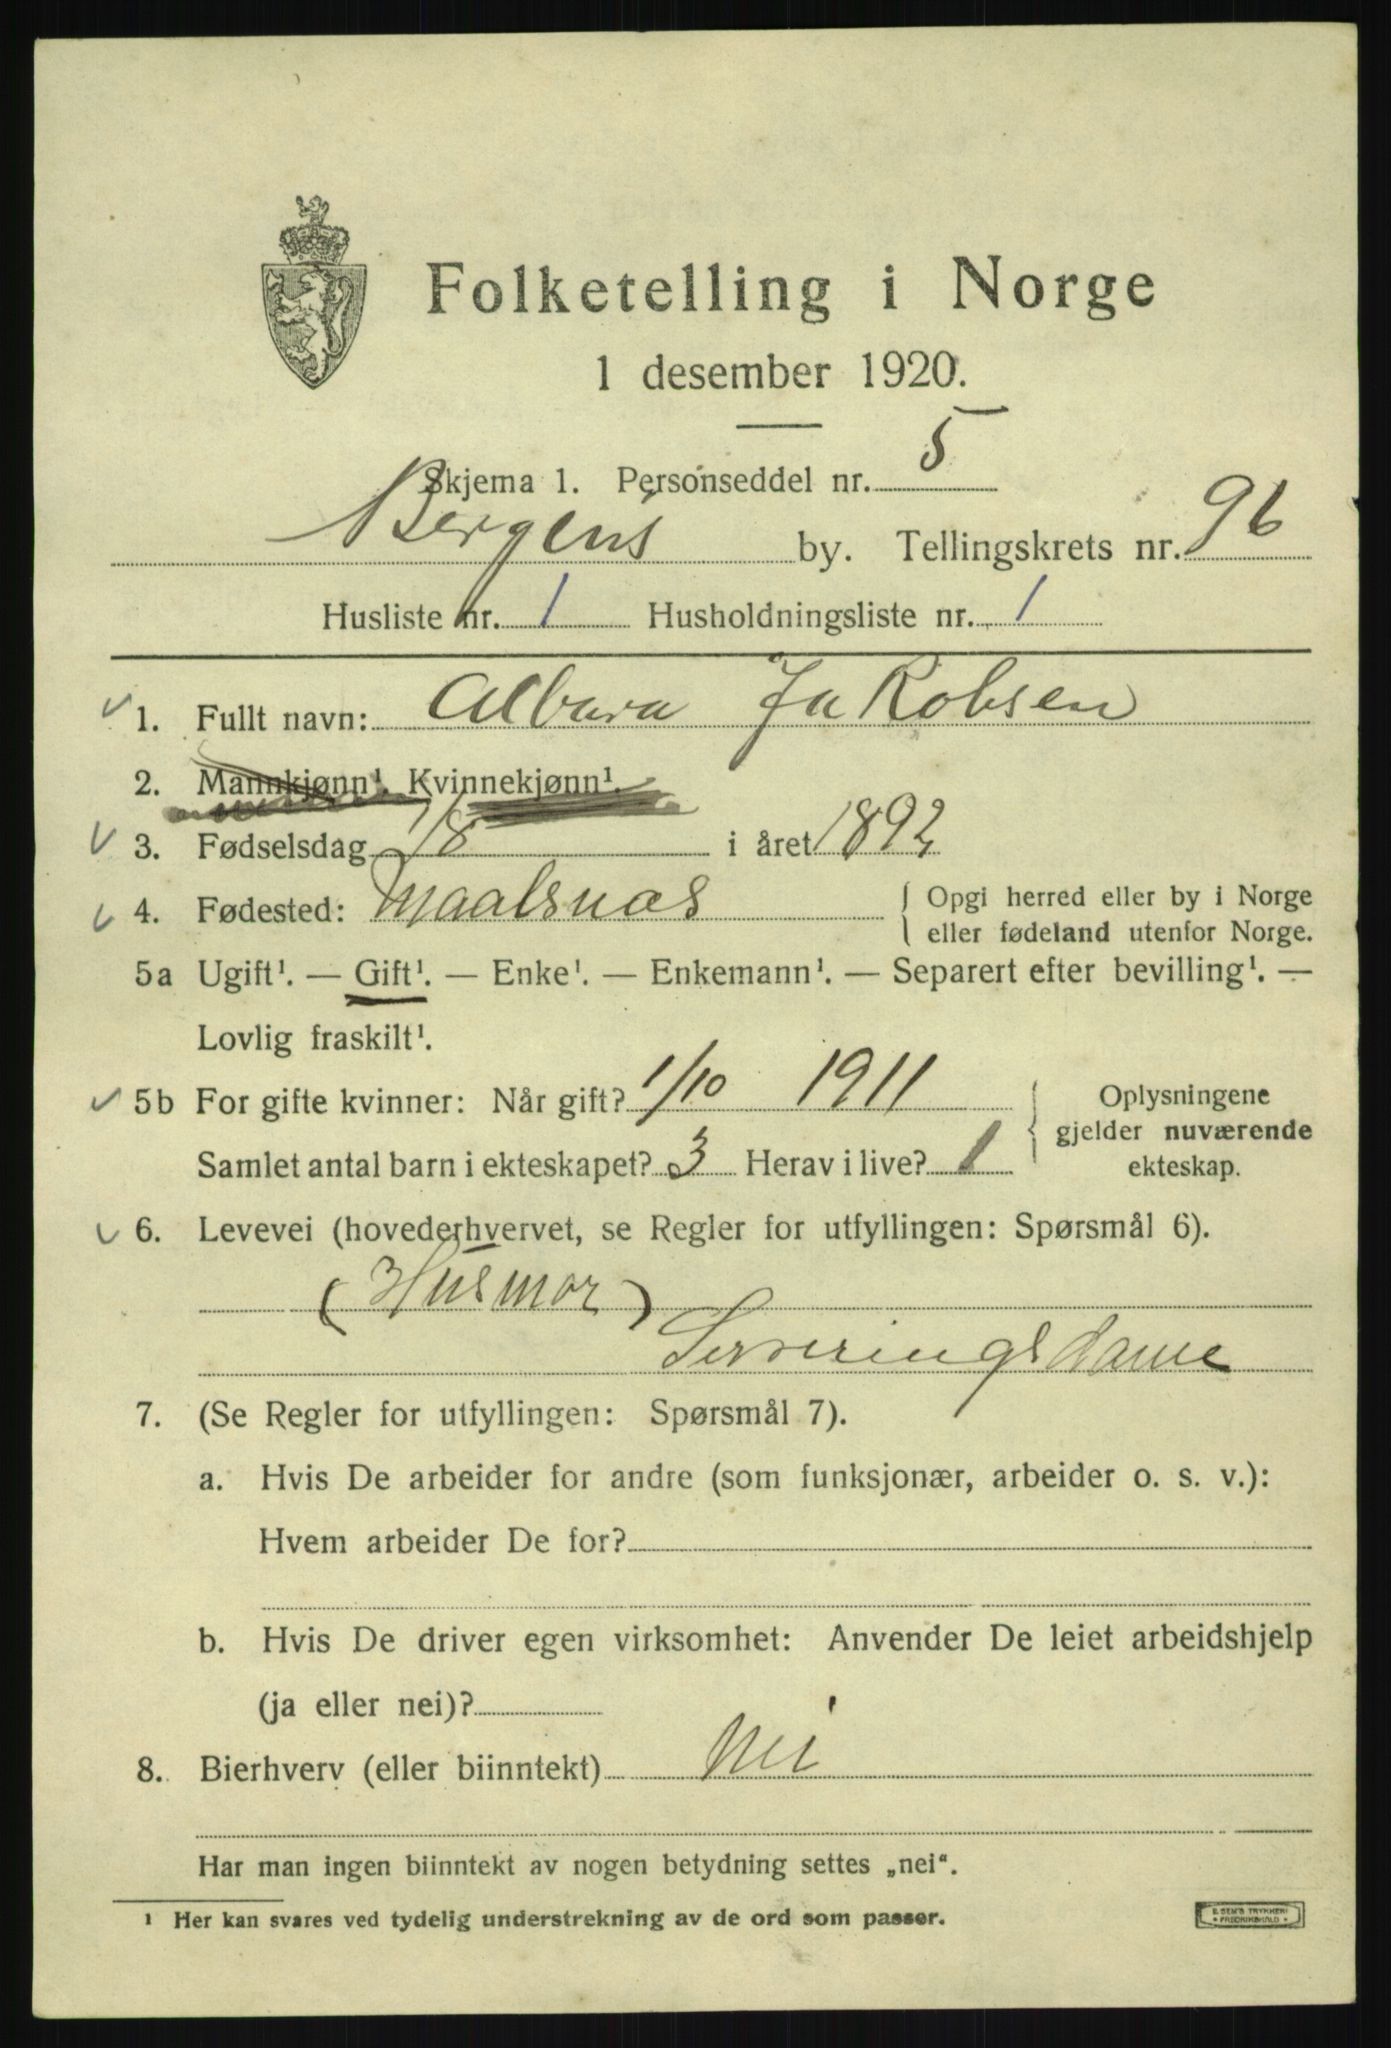 Folketelling i Norge
1 desember 1920.
Skjema 1. Personseddel nr. 5
Bergens by. Tellingskrets nr. 96
Husliste nr. 1 Husholdningsliste nr. 1
1. Fullt navn: Albara Jakobsen
2. Mannkjønn¹. Kvinnekjønn¹.
3. Fødselsdag 1/8 i året 1892
4. Fødested: Maalsnæs { Opgi herred eller by i Norge
eller fødeland utenfor Norge.
5a Ugift¹. — Gift¹. — Enke¹. — Enkemann¹. — Separert efter bevilling¹. —
Lovlig fraskilt¹.
5b For gifte kvinner: Når gift? 1/10 1911 { Oplysningene
gjelder nuværende
Samlet antal barn i ekteskapet? 3 Herav i live? 1 ekteskap.
6. Levevei (hovederhvervet, se Regler for utfyllingen: Spørsmål 6).
(Husmor)
Serveringsdame
7. (Se Regler for utfyllingen: Spørsmål 7).
a. Hvis De arbeider for andre (som funksjonær, arbeider o. s. v.):
Hvem arbeider De for?
b. Hvis De driver egen virksomhet: Anvender De leiet arbeidshjelp
(ja eller nei)?
8. Bierhverv (eller biinntekt) Nei
Har man ingen biinntekt av nogen betydning settes „nei".
¹ Her kan svares ved tydelig understrekning av de ord som passer.